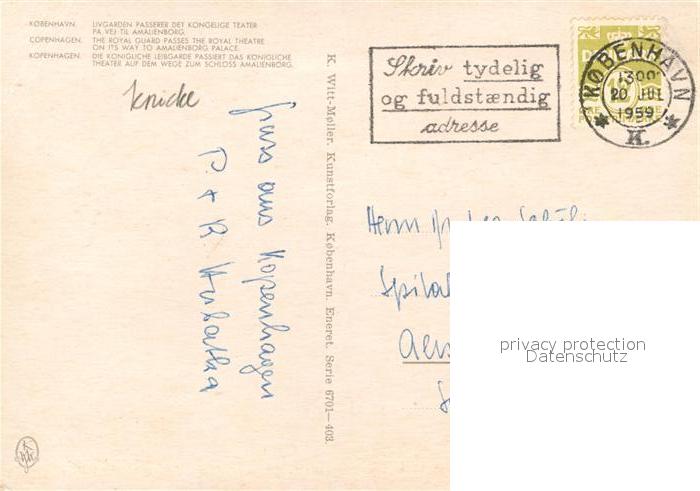 KØBENHAVN. LIVGARDEN PASSERER DET KONGELIGE TEATER
PÅ VEJ TIL AMALIENBORG.
COPENHAGEN. THE ROYAL GUARD PASSES THE ROYAL THEATRE
ON ITS WAY TO AMALIENBORG PALACE.
KOPENHAGEN. DIE KÖNIGLICHE LEIBGARDE PASSIERT DAS KÖNIGLICHE
THEATER AUF DEM WEGE ZUM SCHLOSS AMALIENBORG.
knicke
Gruss aus Kopenhagen
P. + R.
K. Witt-Møller. Kunstforlag. København. Eneret. Serie 6701—403.
Skriv tydelig
og fuldstændig
adresse
KØBENHAVN
1300
20 JUL
1959
K.
Herrn
privacy protection
Datenschutz